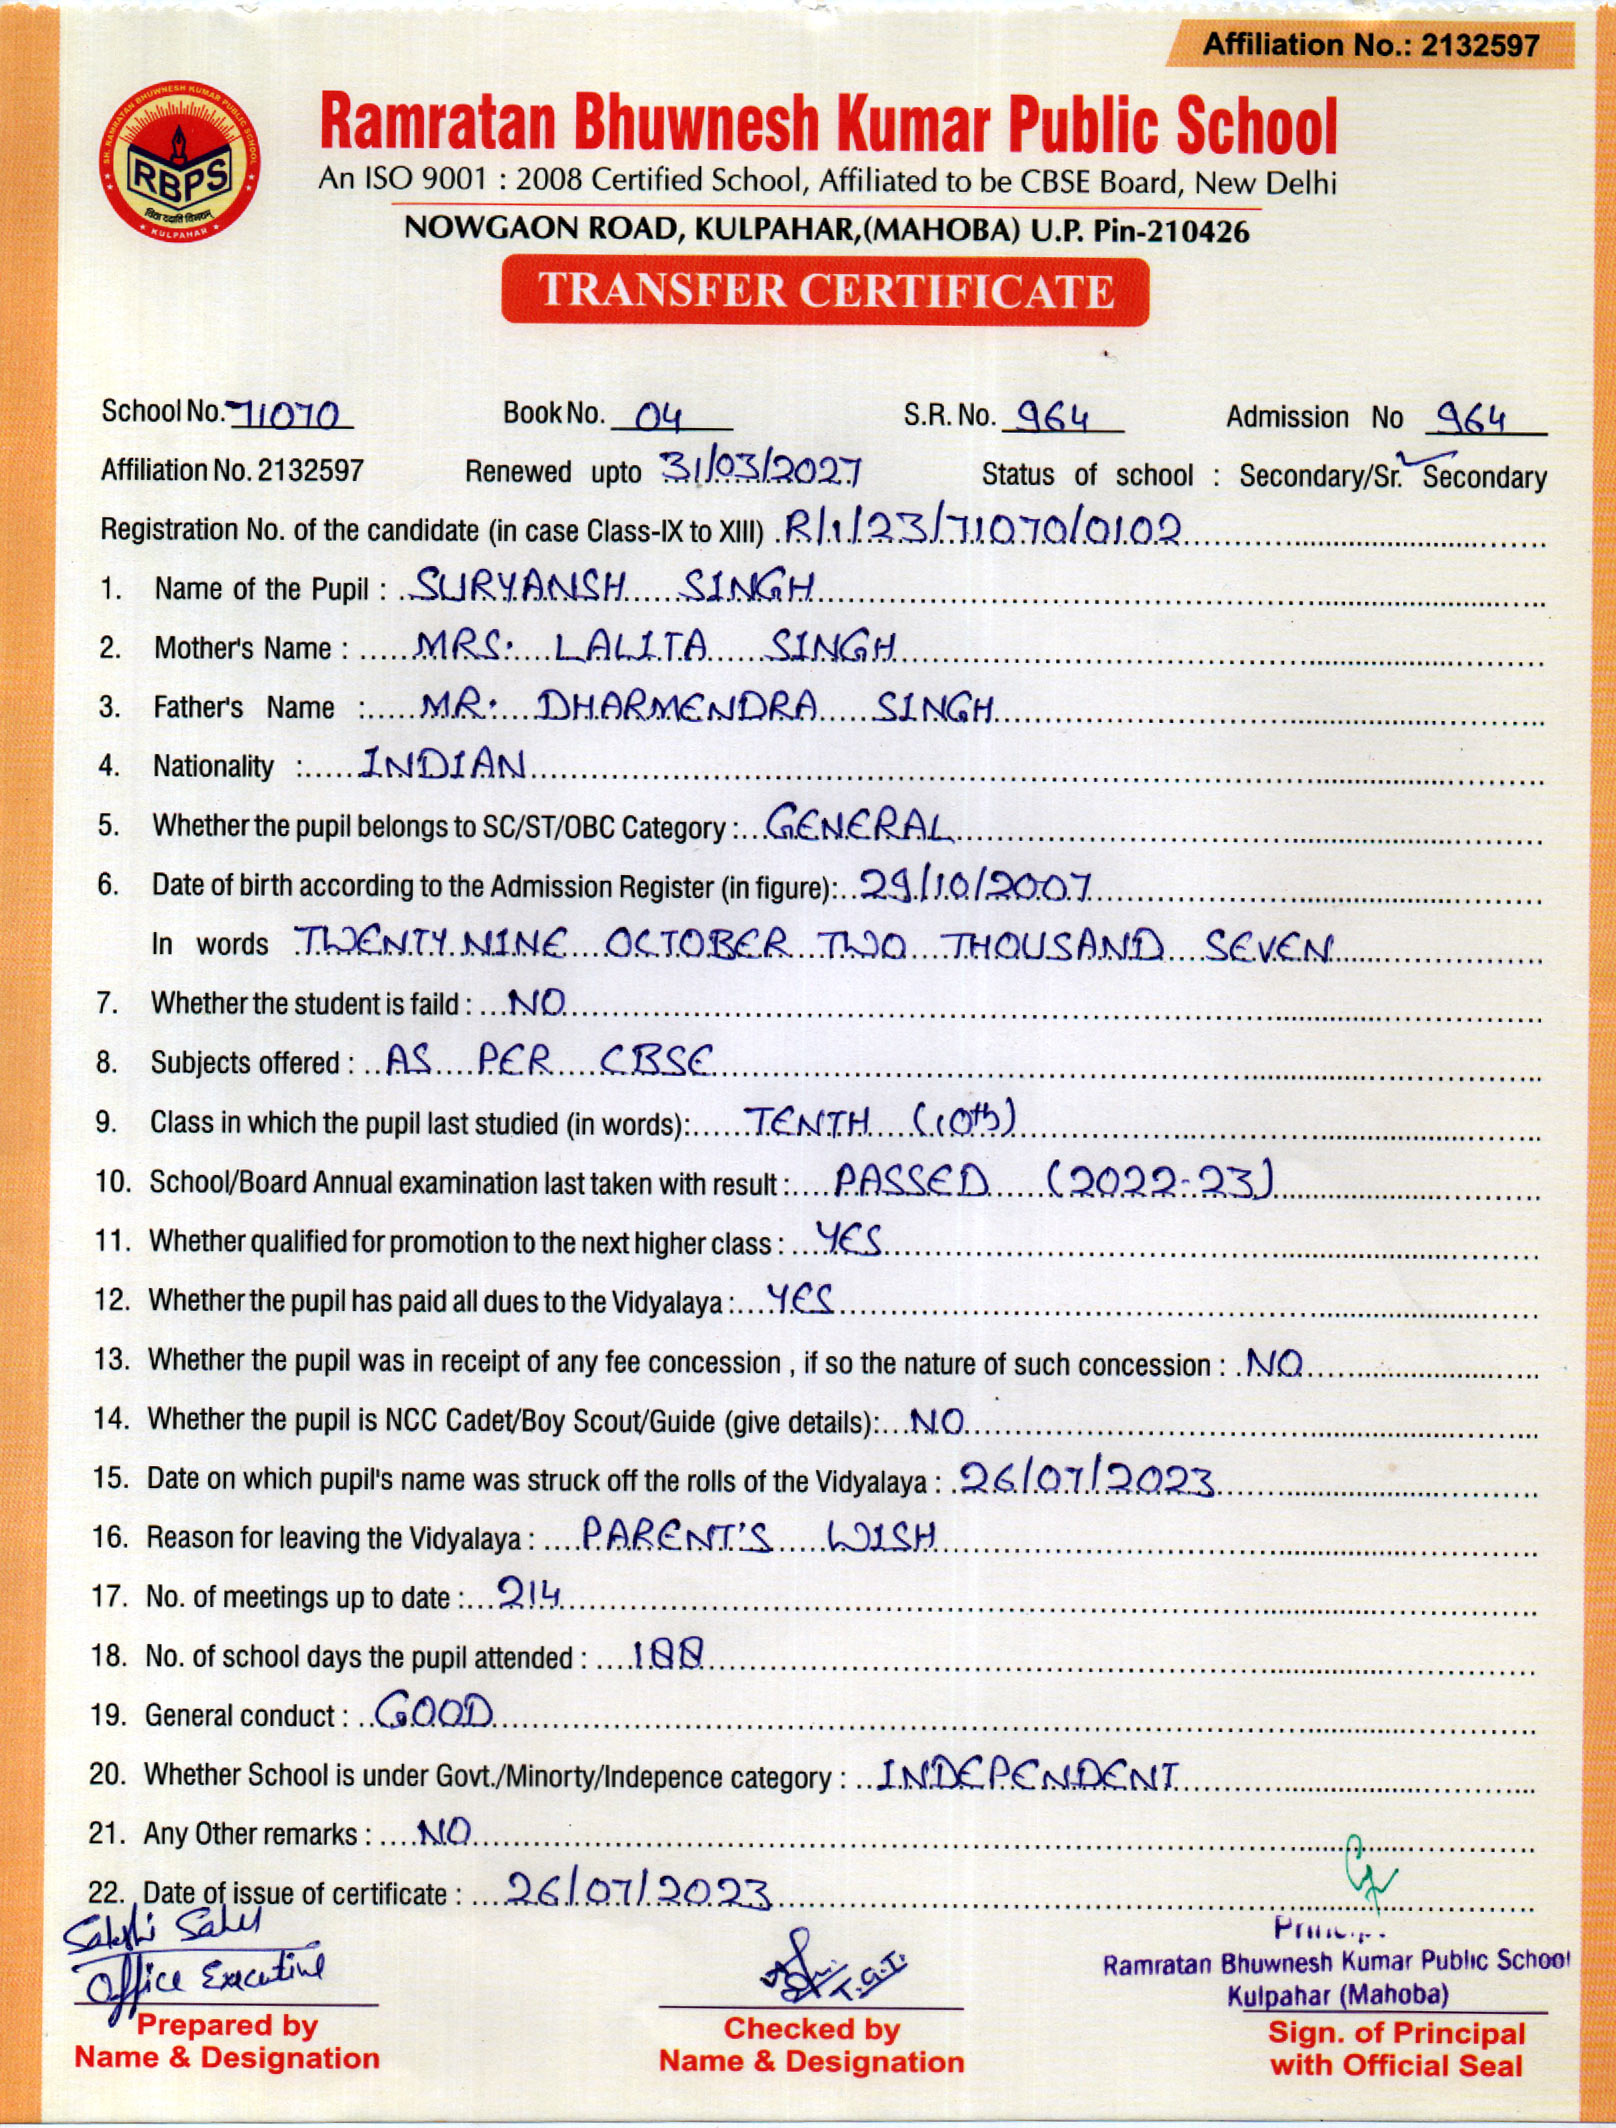 Affiliation No.: 2132597
SH. RAMRATAN BHUWNESH KUMAR PUBLIC SCHOOL
RBPS
विद्या ददाति विनयम्
KULPAHAR
Ramratan Bhuwnesh Kumar Public School
An ISO 9001 : 2008 Certified School, Affiliated to be CBSE Board, New Delhi
NOWGAON ROAD, KULPAHAR,(MAHOBA) U.P. Pin-210426
TRANSFER CERTIFICATE
School No. 71070 Book No. 04 S.R. No. 964 Admission No 964
Affiliation No. 2132597 Renewed upto 31/03/2027 Status of school : Secondary/Sr. Secondary
Registration No. of the candidate (in case Class-IX to XIII) R/1/23/71070/0102
1. Name of the Pupil : SURYANSH SINGH
2. Mother's Name : MRS. LALITA SINGH
3. Father's Name : MR. DHARMENDRA SINGH
4. Nationality : INDIAN
5. Whether the pupil belongs to SC/ST/OBC Category : GENERAL
6. Date of birth according to the Admission Register (in figure): 29/10/2007
In words TWENTY NINE OCTOBER TWO THOUSAND SEVEN
7. Whether the student is faild : NO
8. Subjects offered : AS PER CBSE
9. Class in which the pupil last studied (in words): TENTH (10th)
10. School/Board Annual examination last taken with result : PASSED (2022-23)
11. Whether qualified for promotion to the next higher class : YES
12. Whether the pupil has paid all dues to the Vidyalaya : YES
13. Whether the pupil was in receipt of any fee concession , if so the nature of such concession : NO
14. Whether the pupil is NCC Cadet/Boy Scout/Guide (give details): NO
15. Date on which pupil's name was struck off the rolls of the Vidyalaya : 26/07/2023
16. Reason for leaving the Vidyalaya : PARENT'S WISH
17. No. of meetings up to date : 214
18. No. of school days the pupil attended : 188
19. General conduct : GOOD
20. Whether School is under Govt./Minorty/Indepence category : INDEPENDENT
21. Any Other remarks : NO
22. Date of issue of certificate : 26/07/2023
Sakshi Sahu
Office Executive
Prepared by
Name & Designation
T.G.T.
Checked by
Name & Designation
Ramratan Bhuwnesh Kumar Public School
Kulpahar (Mahoba)
Sign. of Principal
with Official Seal